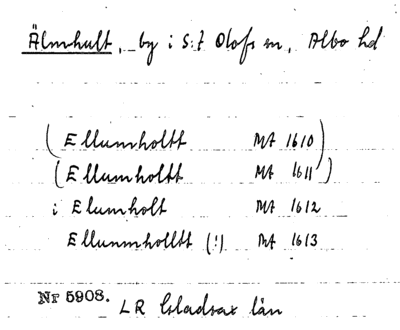 Älmhult, by i S:t Olofs sn, Albo hd
(Ellumholtt MA 1610)
(Ellumholtt MA 1611)
i Elumholt MA 1612
Ellunmholltt (!) MA 1613
Nr 5908. LR Gladsax län